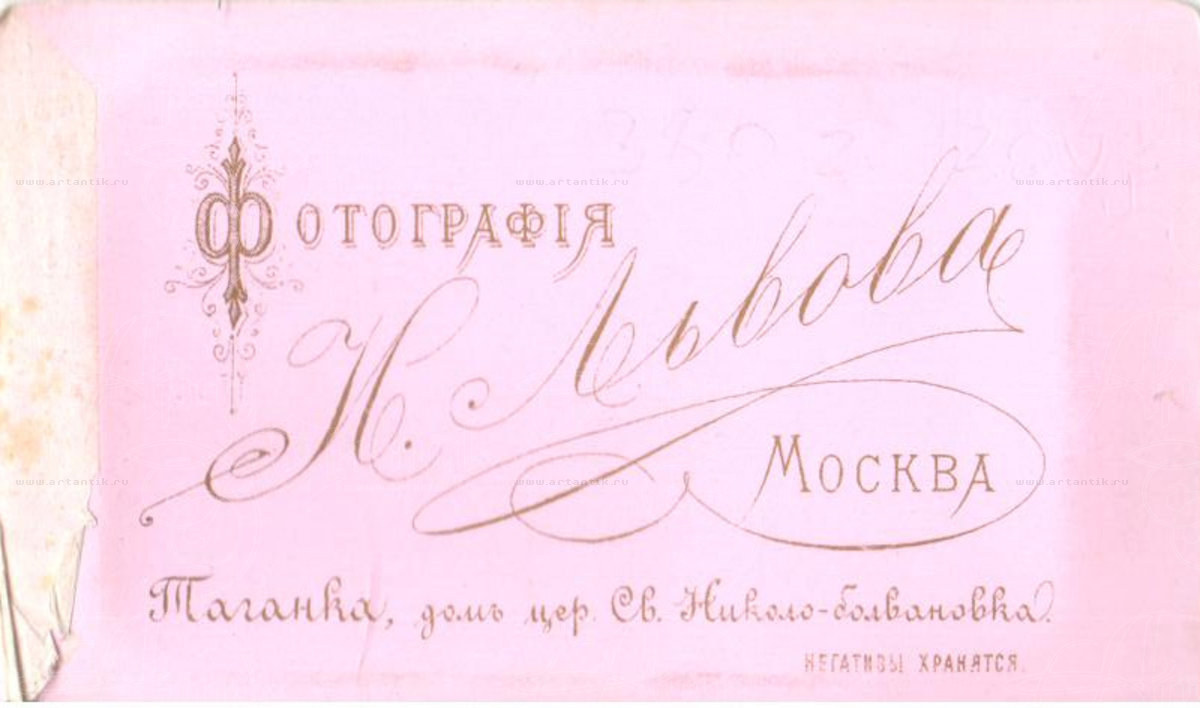 Фотографія
Н. Львова
Москва
Таганка, домъ цер. Св. Николо-болвановка.
НЕГАТИВЫ ХРАНЯТСЯ.
www.artantik.ru www.artantik.ru www.artantik.ru
www.artantik.ru www.artantik.ru www.artantik.ru